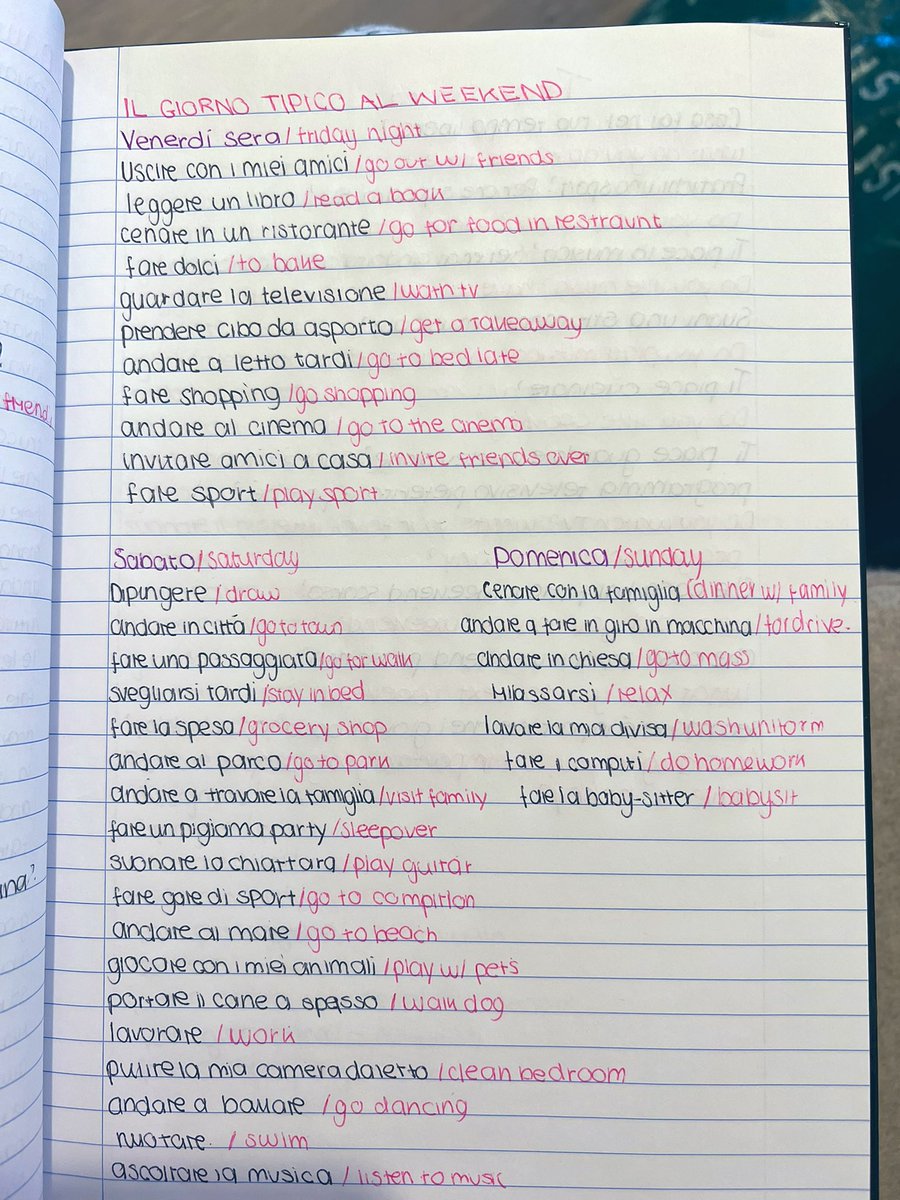 IL GIORNO TIPICO AL WEEKEND
Venerdi sera/friday night
Uscire con i miei amici/go our w/ friends
leggere un libro/read a book
cenare in un ristorante/go for food in restraunt
fare dolci/to bake
guardare la televisione/watch tv
prendere cibo da asporto/get a takeaway
andare a letto tardi/go to bed late
fare shopping/go shopping
andare al cinema/go to the cinema
invitare amici a casa/invite friends over
fare sport/play sport
friend
Sabato/saturday
Dipingere/draw
andare in città/go to town
fare una passaggiata/go for walk
svegliarsi tardi/stay in bed
fare la spesa/grocery shop
andare al parco/go to park
andare a travare la famiglia/visit family
fare un pigiama party/sleepover
suonare la chiattara/play guitar
fare gare di sport/go to
andare al mare/go to beach
giocare con i miei animali/play w/ pets
portare il cane a spasso/walk dog
lavorare/work
pulire la mia camera da letto/clean bedroom
andare a ballare/go dancing
nuotare./swim
ascoltare la musica/listen to music
Domenica/sunday
cenare con la famiglia (dinner w/ family
andare a fare in giro in macchina/for drive.
andare in chiesa/go to mass
rilassarsi/relax
lavare la ma divisa/wash uniform
fare i computi/do homework
fare la baby-sitter/babysit